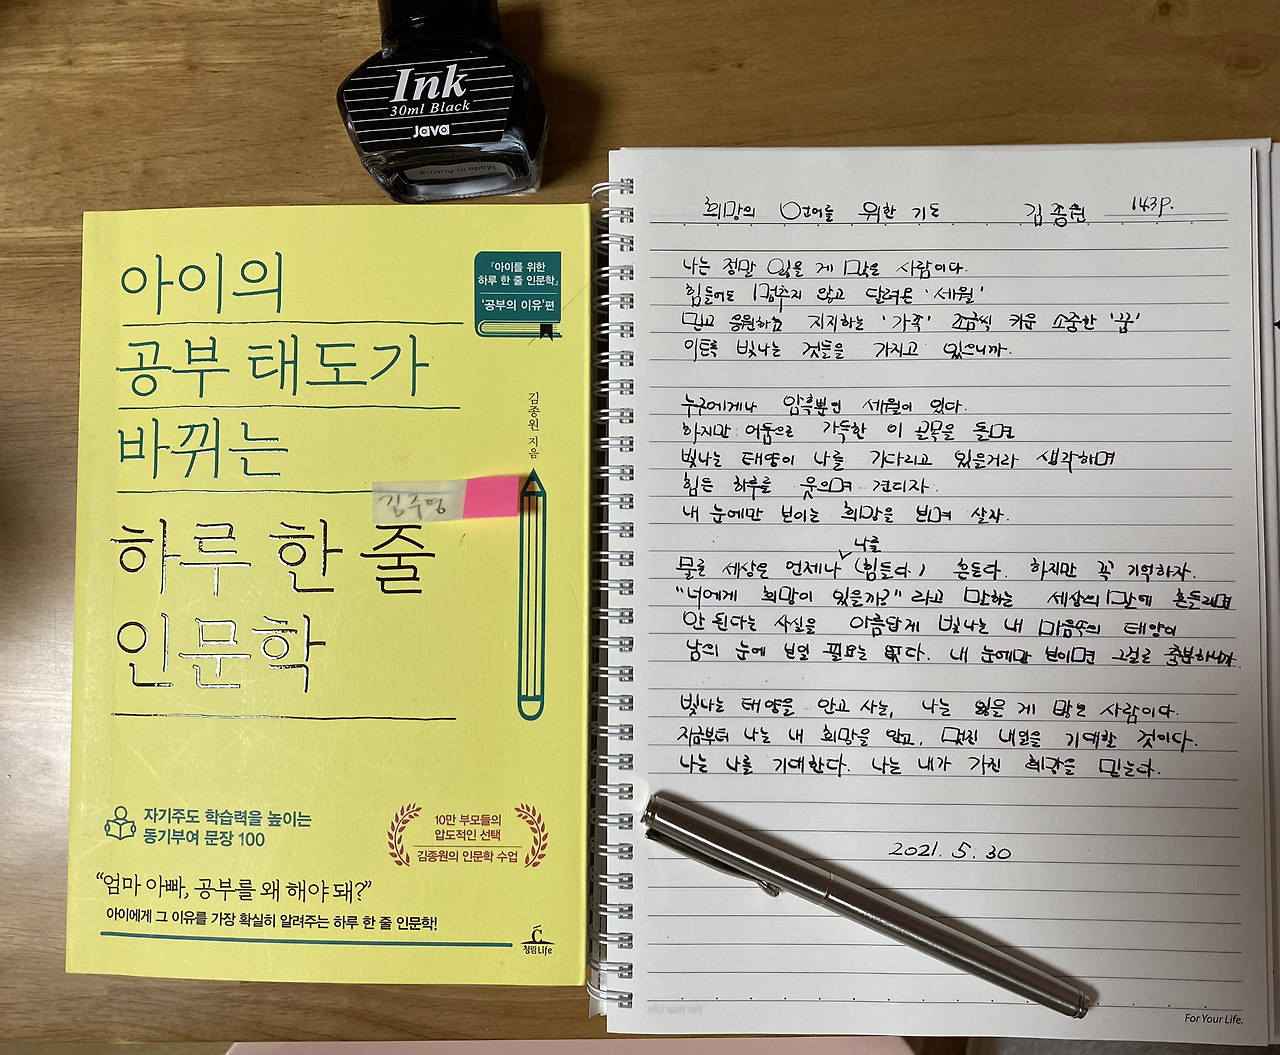 Ink
30ml Black
Java
Made in Austria
아이의
공부 태도가
바뀌는
하루 한 줄
인문학
『아이를 위한
하루 한 줄 인문학』
'공부의 이유'편
김종원 지음
김주영
자기주도 학습력을 높이는
동기부여 문장 100
10만 부모들의
압도적인 선택
김종원의 인문학 수업
"엄마 아빠, 공부를 왜 해야 돼?"
아이에게 그 이유를 가장 확실히 알려주는 하루 한 줄 인문학!
청림Life
희망의 언어를 위한 기도 김종원 143p.
나는 정말 잃을 게 많은 사람이다.
힘들어도 멈추지 않고 달려온 '세월'
믿고 응원하고 지지하는 '가족' 조금씩 키운 소중한 '꿈'
이토록 빛나는 것들을 가지고 있으니까.
누구에게나 암흑뿐인 세월이 있다.
하지만 어둠으로 가득한 이 골목을 돌면
빛나는 태양이 나를 기다리고 있을거라 생각하며
힘든 하루를 웃으며 견디자.
내 눈에만 보이는 희망을 보며 살자.
나를
물론 세상은 언제나 (힘들다.) 흔든다. 하지만 꼭 기억하자.
"너에게 희망이 있을까?" 라고 말하는 세상의 말에 흔들리면
안 된다는 사실을 아름답게 빛나는 내 마음속의 태양이
남의 눈에 보일 필요는 없다. 내 눈에만 보이면 그걸로 충분하니까.
빛나는 태양을 안고 사는, 나는 잃을 게 많은 사람이다.
지금부터 나는 내 희망을 안고, 멋진 내일을 기대할 것이다.
나는 나를 기대한다. 나는 내가 가진 희망을 믿는다.
2021. 5. 30
For Your Life.